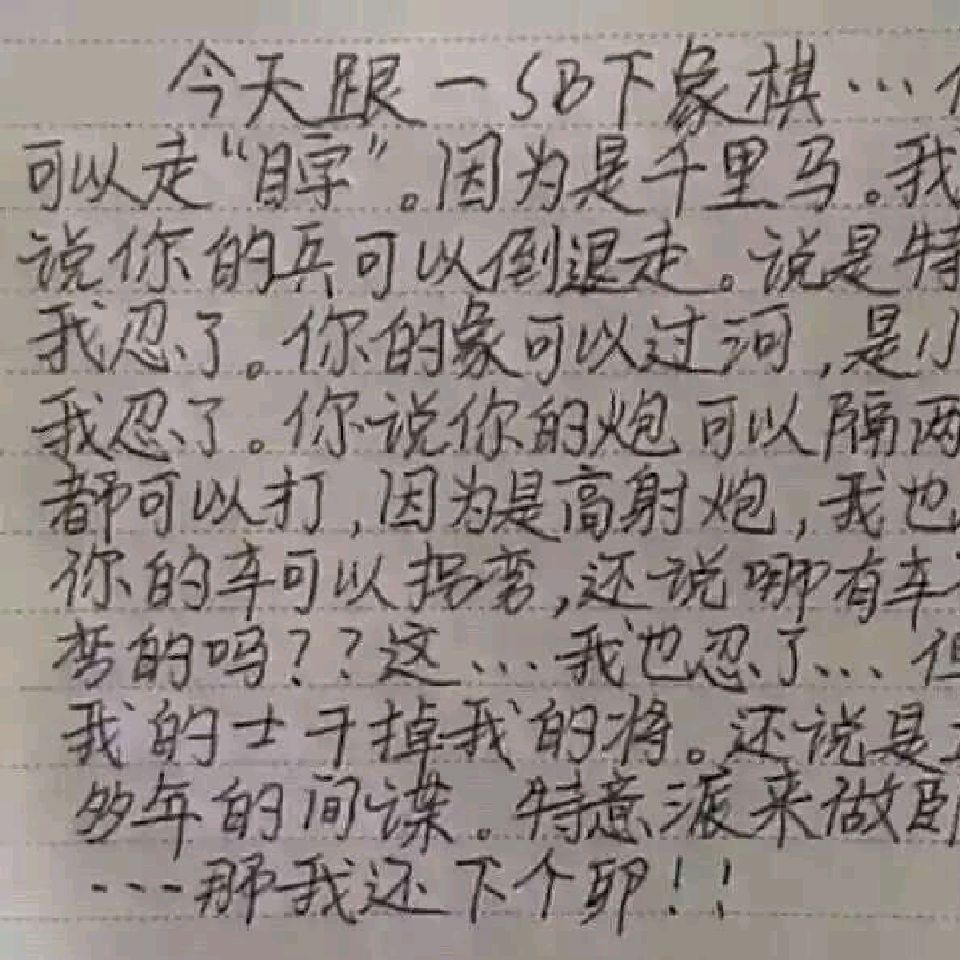 今天跟一SB下象棋…
可以走“目字”。因为是千里马。我
说你的兵可以倒退走。说是特
我忍了。你的象可以过河,是小
我忍了。你说你的炮可以隔两
都可以打,因为是高射炮,我也
你的车可以拐弯,还说哪有车
弯的吗??这…我也忍了…但
我的士干掉我的将。还说是
多年的间谍。特意派来做卧
…那我还下个卵!!